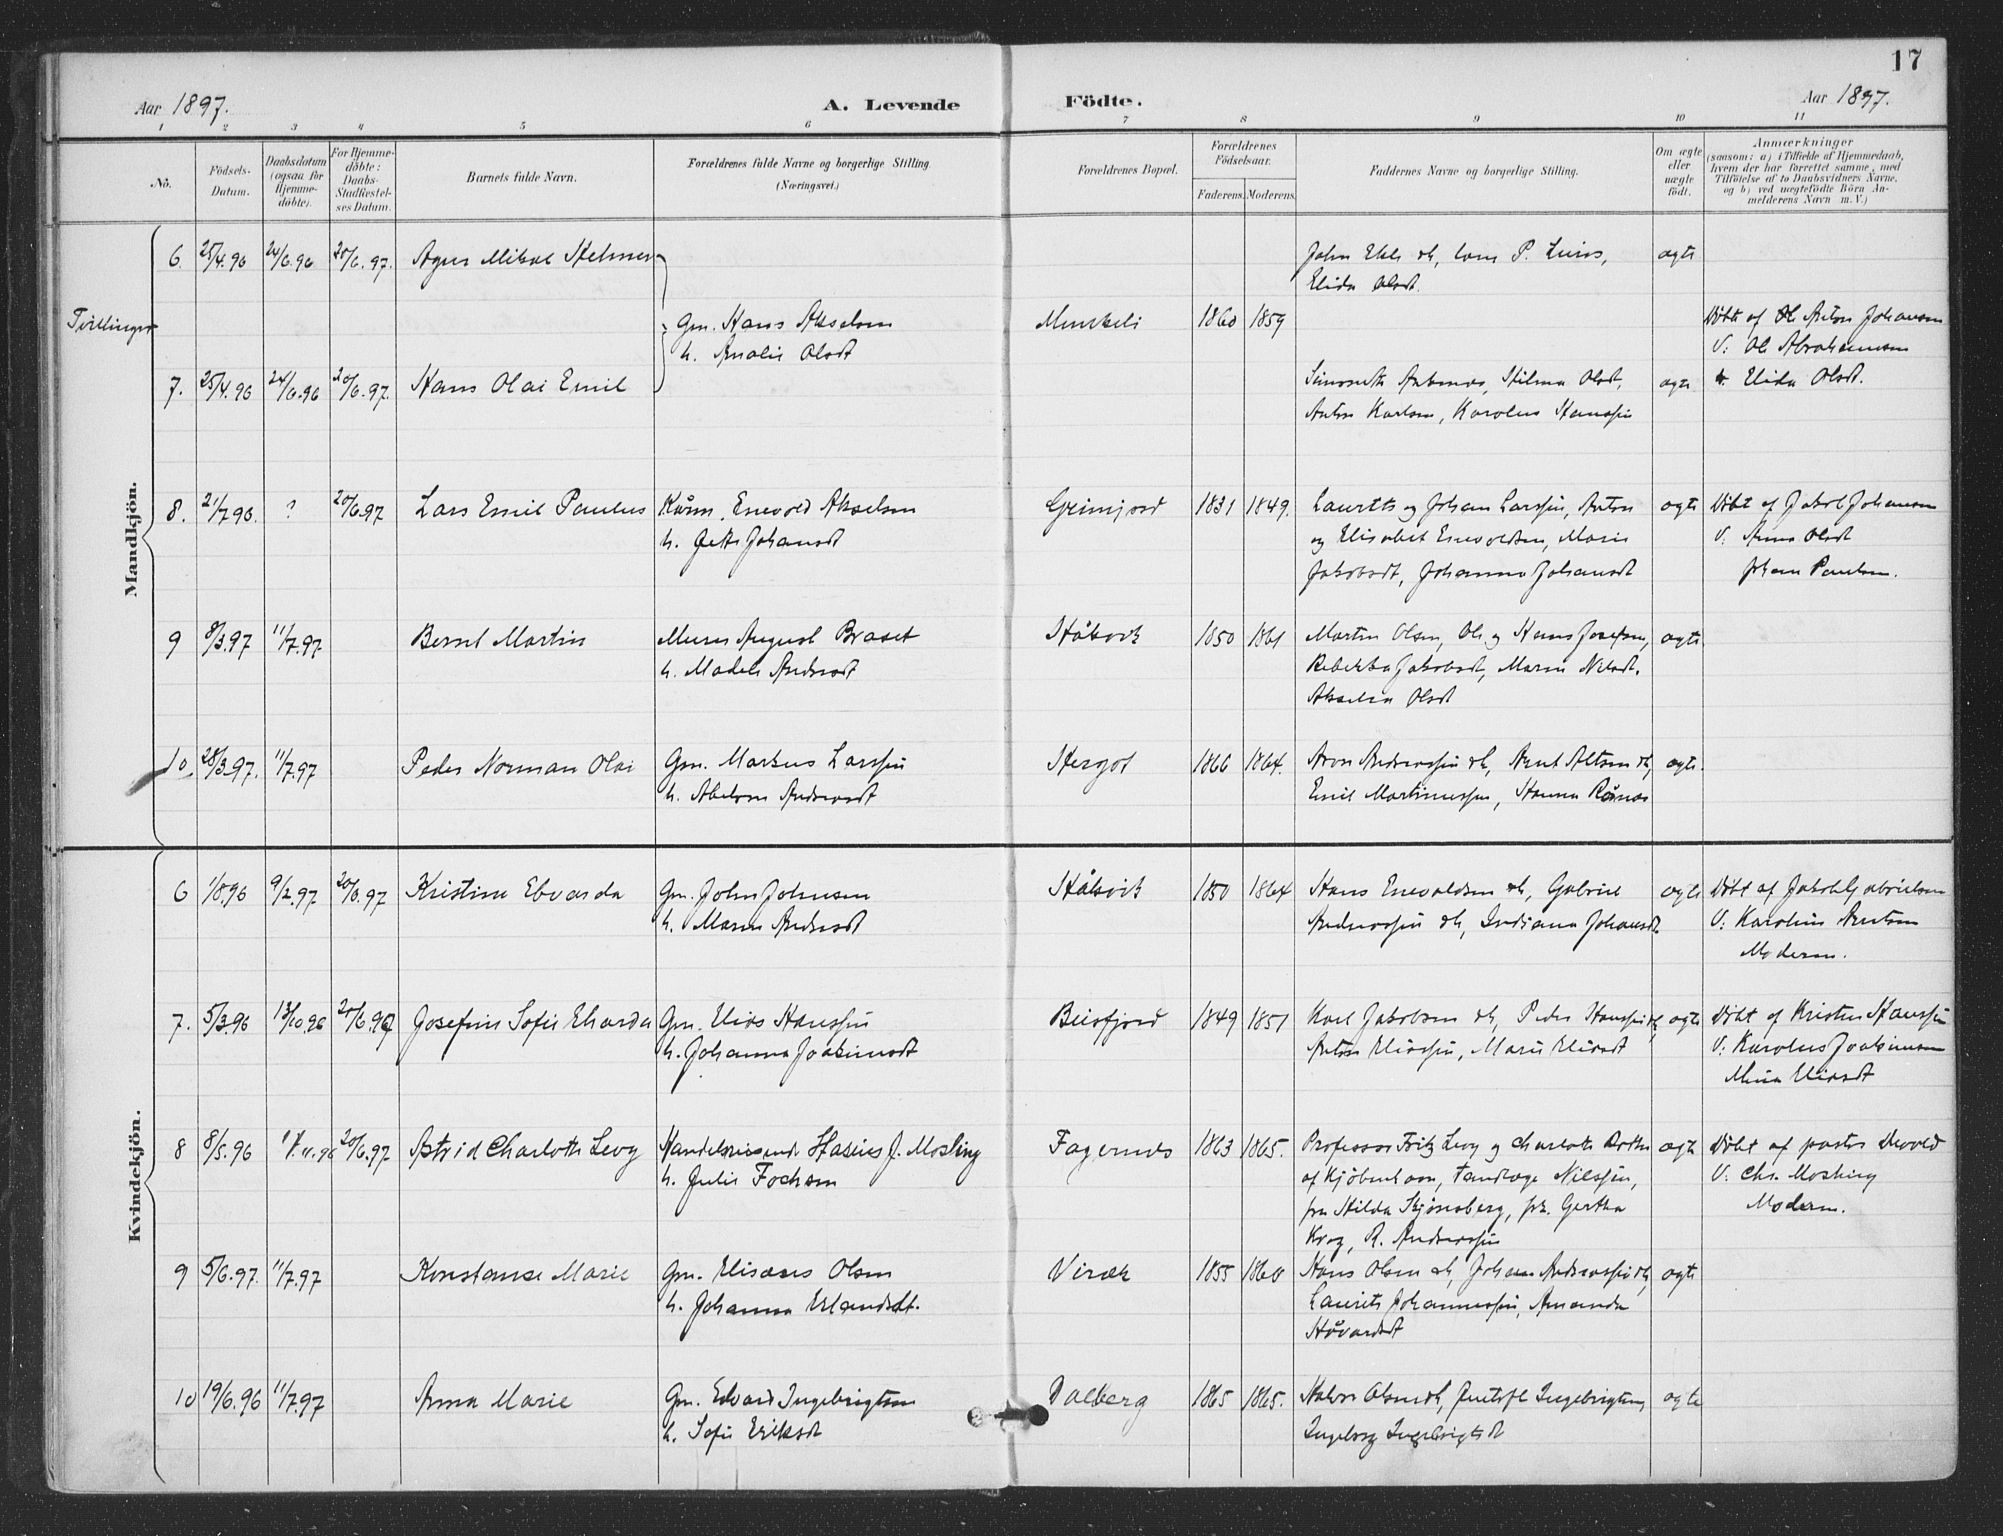 17
Aar 1897.
A. Levende
Födte.
Aar 1897.
1 2 3 4 5 6 7 8 9 10 11
No.
Födsels-Datum.
Daabsdatum (ogsaa for Hjemme-döbte).
For Hjemme-döbte: Daabs-Stadfæstel-ses Datum.
Barnets fulde Navn.
Forældrenes fulde Navne og borgerlige Stilling (Næringsvei.)
Forældrenes Bopæl.
Forældrenes Födselsaar.
Faderens. Moderens.
Faddernes Navne og borgerlige Stilling.
Om ægte eller uægte födt.
Anmærkninger
(saasom: a) i Tilfælde af Hjemmedaab,
hvem der har forrettet samme, med
Tilföielse af to Daabsvidners Navne,
og b) ved uægtefödte Börn An-
melderens Navn m. V.)
Mandkjön.
Tvillinger
6. 25/4.96 24/6.96 20/6.97. Agnes Mikal Helmer
John Eble, P.
Elida Olsdt.
ægte
Gm. Hans Akselsen
h. Analie Olsdt
Menkeli 1860 1859
Döbt af Ole Anton Johansen
V: Ol Abrahamsen
Elida Olsdt.
7. 25/4.96 24/6.96 20/6.97. Hans Olai Emil
Hilma Olsdt,
Anton Karlsen, Karolus Hanssen
ægte
8. 21/7.96. ? 20/6.97 Lars Emil Paulus
Kårm. Enevold Akselsen
h. Jette Johansdt
Grimjord 1831 1849.
Laurits og Johan Larssen, Anton
og Elisabet Enevoldsen, Marie
Jakobsdt, Johanna Johansdt
ægte
Döbt af Jakob Johansen
V: Anne Olsdt
Johan Paulsen.
9 8/3.97 11/7.97 Bernt Martin
Murer August Braset
h. Madele Andersdt
Håkvik 1850 1861
Martin Olsen, Ole og Hans Josefsen,
Rebekka Jakobsdt, Maren Nilsdt.
Akselia Olsdt
ægte
10. 28/3.97. 11/7.97 Peder Norman Olai
Gm. Markus Larssen
h. Abelone Andersdt
Hergot 1866 1864.
Aron Andersssen, Arnt Altsen
Emil Martinussen, Hanna Rånas
ægte.
Kvindekjön.
6 1/8.96 9/2.97 20/6.97 Kristine Edvarda
Gm. John Johnsen
h. Maren Andersdt
Håkvik 1850 1864
Hans Enevoldsen, Gabriel
Anderssen, Indiana Johansdt
ægte
Döbt af Jakob Gabrielsen
V: Karolius Arntsen
Moderen.
7. 5/3.96 13/10.96 20/6.97 Josefine Sofie Eharda
Gm. Elias Hanssen
h. Johanna Joakimsdt
Beisfjord 1849 1851
Karl Jakobsen, Peder Hanssen
Anton Eliassen, Marie Eliasdt
ægte
Döbt af Kristen Hanssen
V: Karolus Joakimsen
Mina Eliasdt
8 8/5.96 11.96 20/6.97 Astrid Charlotte Levy
Handelsreisende Hasius J. Mosling
h. Julie Fochsen
Fagernes 1863 1865.
Professor Fritz Levy og Charlotte Rothe
af Kjöbenhavn, Tandlæge Nilssen,
fru Hilda Skjönsberg, frk. Gertha
Krog, R. Anderssen
ægte
Döbt af pastor Devold
V: Chr. Mosling
Moderen.
9 5/6.97. 11/7.97 Konstanse Marie
Gm. Elisæus Olsen
h. Johanna Erlandsdt.
Viræk 1855 1860
Hans Olsen, Johan Anderssen
Laurits Johannessen, Amanda
Håvardsdt
ægte
10 19/6.96 11/7.97 Anna Marie
Gm. Edvard Ingebrigtsen
h. Sofie Eriksdt
Dalberg 1865 1865.
Halvor Olsen, Ingebrigtsen,
Ingeborg Ingebrigtsdt
ægte